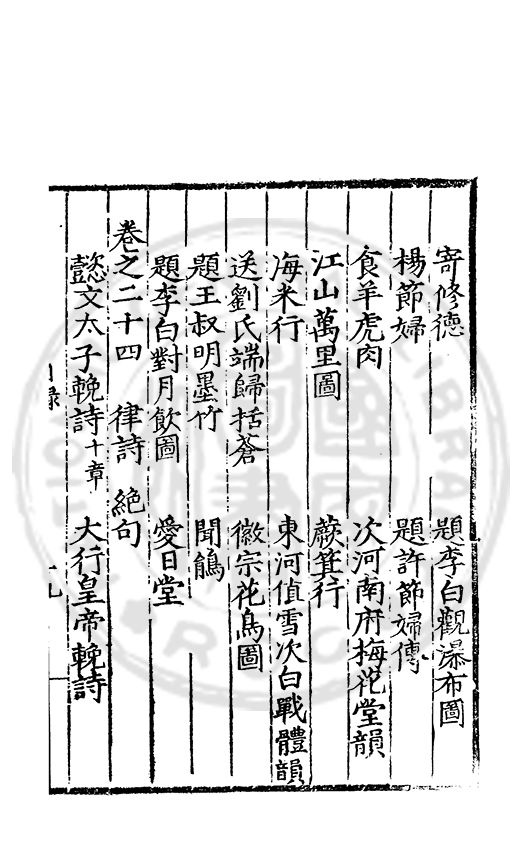 寄修德　題李白觀瀑布圖
楊節婦　題許節婦傳
食羊虎肉　次河南府梅花堂韻
江山萬里圖　蕨箕行
海米行　東河値雪次白戰體韻
送劉氏端歸括蒼　徽宗花鳥圖
題王叔明墨竹　聞鵂
題李白對月飲圖　愛日堂
卷之二十四　律詩　絕句
懿文太子輓詩十章　大行皇帝輓詩
目錄